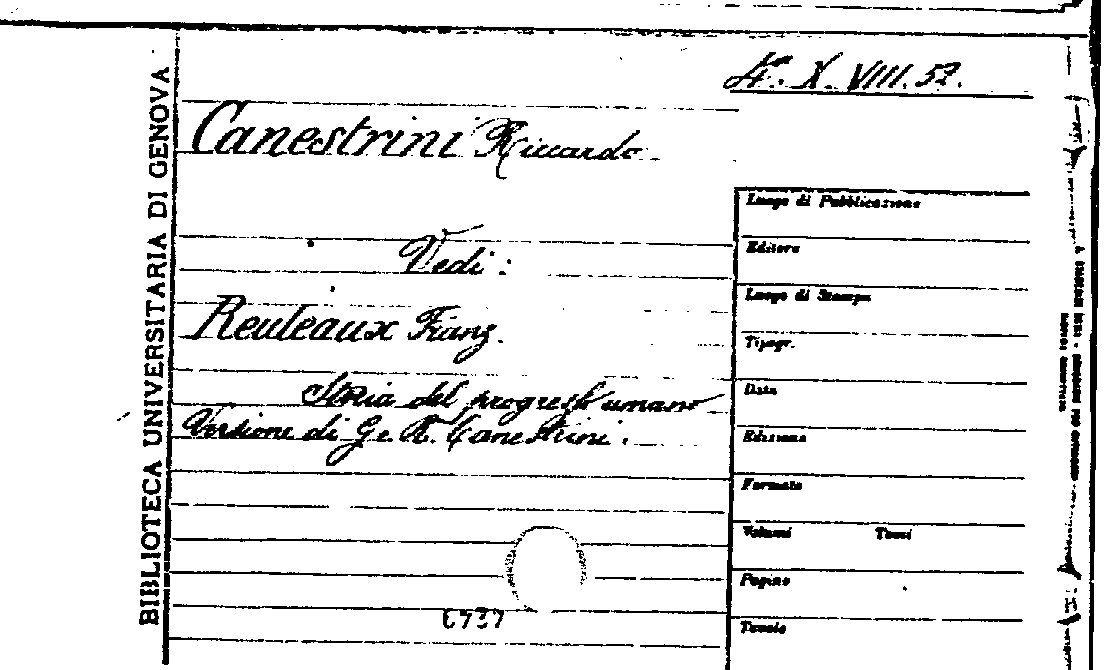 BIBLIOTECA UNIVERSITARIA DI GENOVA
4ⁿ. X. VIII. 52.
Canestrini Riccardo
Vedi :
Reuleaux Franz.
Storia del progresso umano
Versione di G. e R. Canestrini.
6737
Luogo di Pubblicazione
Editore
Luogo di Stampa
Tipogr.
Data
Edizione
Formato
Volumi Tomi
Pagine
Tavole